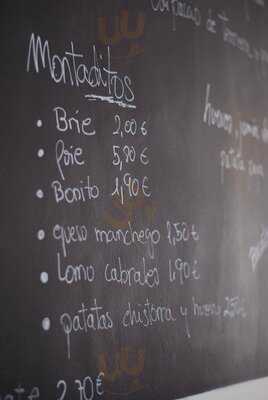 Carpaccio de Ternera
Montaditos
• Brie 2,00 €
• Foie 5,70 €
• Bonito 1,90 €
• queso manchego 1,50 €
• Lomo cabrales 1,90 €
• patatas chistorra y huevo 2,50 €
2,70 €
huevos, jamón
patata